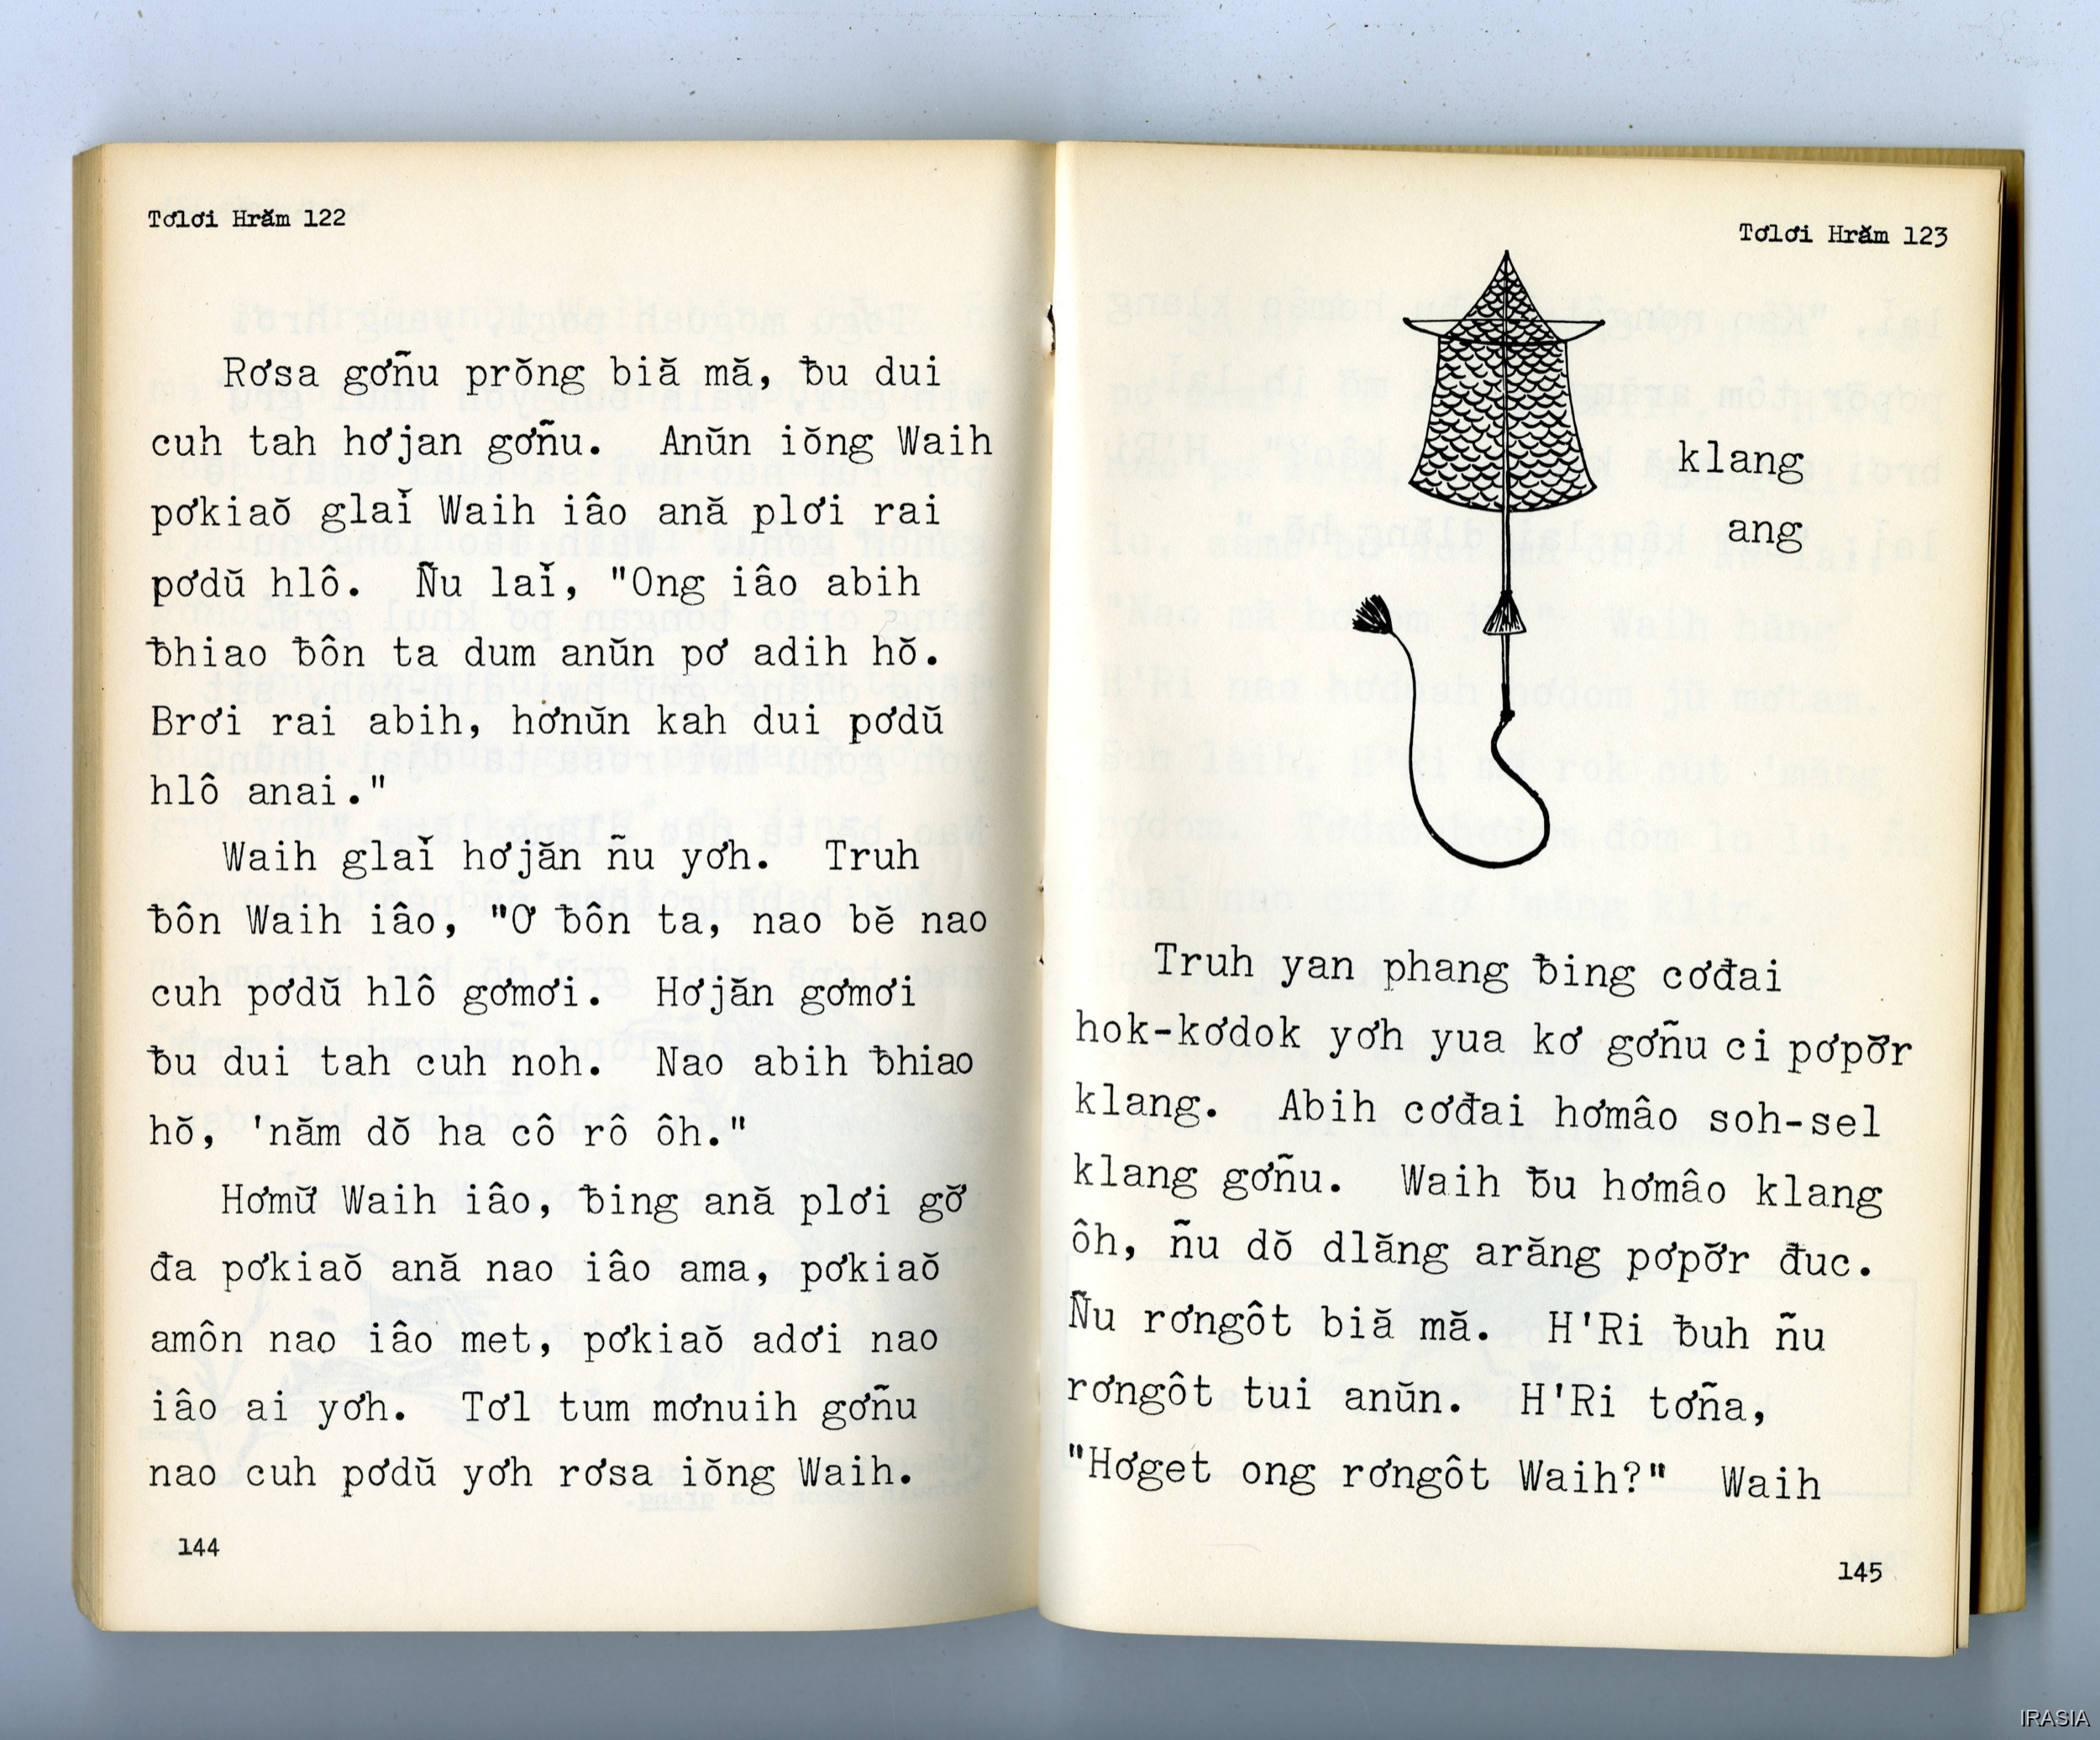 Tơlơi Hrăm 122
Rơsa gơñu prŏng biă mă, ƀu dui
cuh tah hơjan gơñu. Anŭn iŏng Waih
pơkiaŏ glaĭ Waih iâo ană plơi rai
pơdŭ hlô. Ñu laĭ, "Ong iâo abih
ƀhiao ƀôn ta dum anŭn pơ adih hŏ.
Brơi rai abih, hơnŭn kah dui pơdŭ
hlô anai."
Waih glaĭ hơjăn ñu yơh. Truh
ƀôn Waih iâo, "Ơ ƀôn ta, nao bĕ nao
cuh pơdŭ hlô gơmơi. Hơjăn gơmơi
ƀu dui tah cuh noh. Nao abih ƀhiao
hŏ, 'năm dŏ ha cô rô ôh."
Hơmư̆ Waih iâo, ƀing ană plơi gơ̆
đa pơkiaŏ ană nao iâo ama, pơkiaŏ
amôn nao iâo met, pơkiaŏ adơi nao
iâo ai yơh. Tơl tum mơnuih gơñu
nao cuh pơdŭ yơh rơsa iŏng Waih.
144
Tơlơi Hrăm 123
klang
ang
Truh yan phang ƀing cơđai
hok-kơdok yơh yua kơ gơñu ci pơpơ̆r
klang. Abih cơđai hơmâo soh-sel
klang gơñu. Waih ƀu hơmâo klang
ôh, ñu dŏ dlăng arăng pơpơ̆r đuc.
Ñu rơngôt biă mă. H'Ri ƀuh ñu
rơngôt tui anŭn. H'Ri tơña,
"Hơget ong rơngôt Waih?" Waih
145
IRASIA